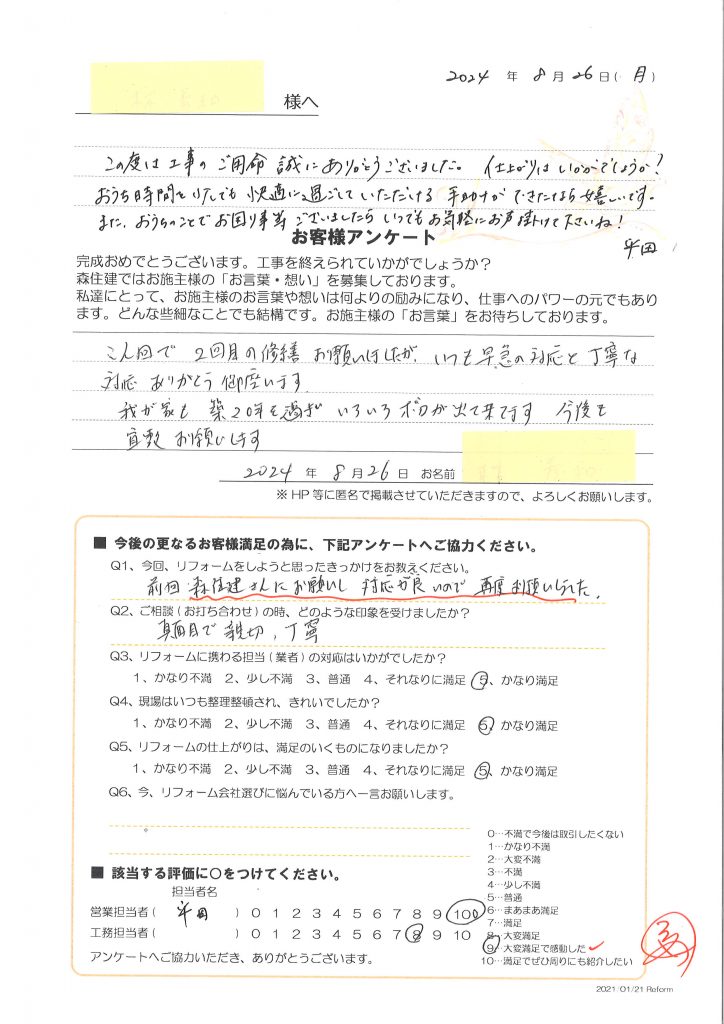 2024 年 8月26日(月)
様へ
この度は工事のご用命 誠にありがとうございました。 仕上がりはいかがでしょうか?
おうち時間を少しでも快適に過ごしていただける手助けができたなら嬉しいです。
また、おうちのことでお困り事等ございましたらいつでもお気軽にお声掛け下さいね!
平田
お客様アンケート
完成おめでとうございます。工事を終えられていかがでしょうか?
森住建ではお施主様の「お言葉・想い」を募集しております。
私達にとって、お施主様のお言葉や想いは何よりの励みになり、仕事へのパワーの元でもあり
ます。どんな些細なことでも結構です。お施主様の「お言葉」をお待ちしております。
こん回で 2回目の修繕 お願いしましたが、いつも早急の対応と丁寧な
対応 ありがとう御座います。
我が家も 築20年を過ぎ いろいろボロが出て来てます 今後も
宜敷 お願いします
2024 年 8月26日 お名前
※HP等に匿名で掲載させていただきますので、よろしくお願いします。
■ 今後の更なるお客様満足の為に、下記アンケートへご協力ください。
Q1、今回、リフォームをしようと思ったきっかけをお教えください。
前回 森住建さんにお願いし 対応が良いので 再度お願いしました。
Q2、ご相談(お打ち合わせ)の時、どのような印象を受けましたか?
真面目で親切、丁寧
Q3、リフォームに携わる担当(業者)の対応はいかがでしたか?
1、かなり不満 2、少し不満 3、普通 4、それなりに満足 5、かなり満足
Q4、現場はいつも整理整頓され、きれいでしたか?
1、かなり不満 2、少し不満 3、普通 4、それなりに満足 5、かなり満足
Q5、リフォームの仕上がりは、満足のいくものになりましたか?
1、かなり不満 2、少し不満 3、普通 4、それなりに満足 5、かなり満足
Q6、今、リフォーム会社選びに悩んでいる方へ一言お願いします。
0…不満で今後は取引したくない
1…かなり不満
2…大変不満
3…不満
4…少し不満
5…普通
6…まあまあ満足
7…満足
8…大変満足
9…大変満足で感動した
10…満足でぜひ周りにも紹介したい
■ 該当する評価に○をつけてください。
担当者名
営業担当者( 平田 ) 0 1 2 3 4 5 6 7 8 9 10
工務担当者( ) 0 1 2 3 4 5 6 7 8 9 10
アンケートへご協力いただき、ありがとうございます。
2021/01/21 Reform